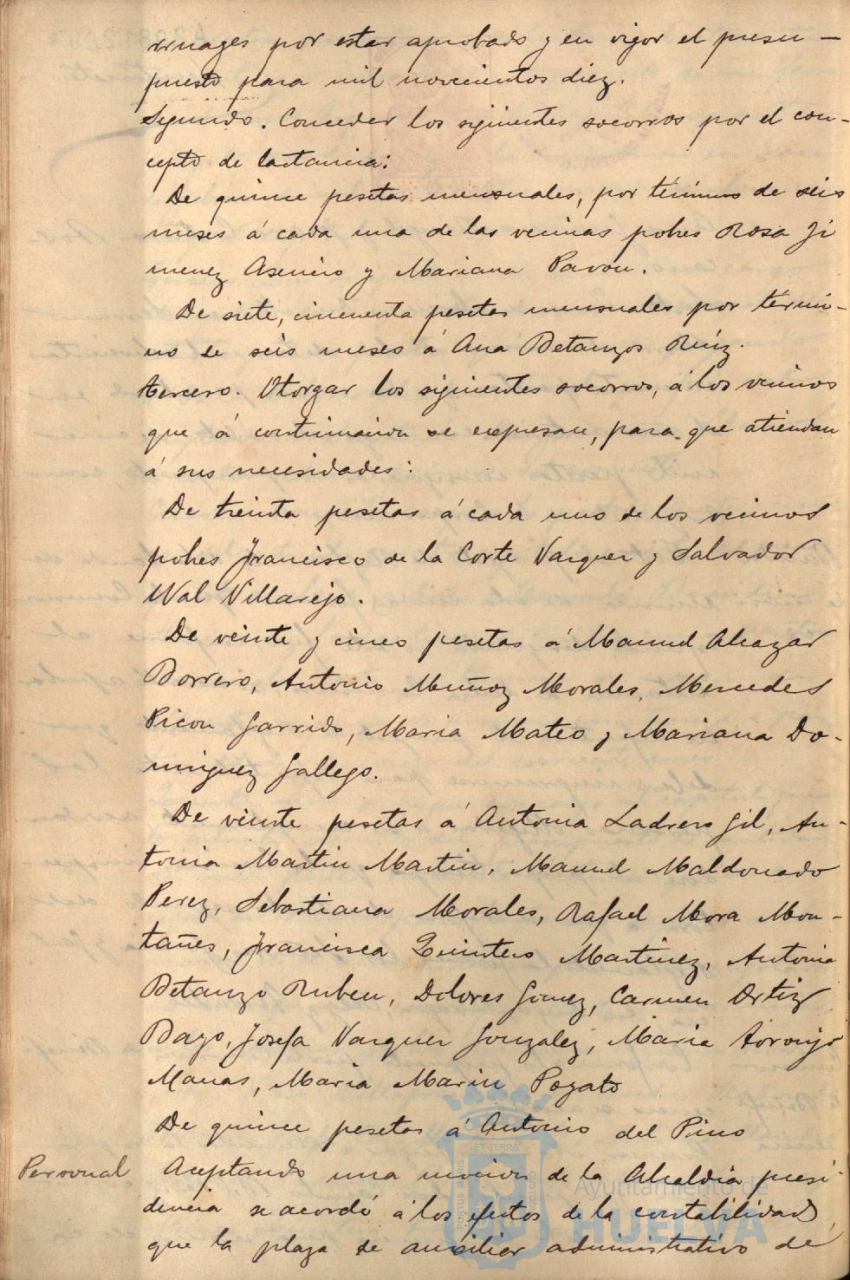 rruages por estar aprobado y en vigor el presu-
puesto para mil novecientos diez.
Segundo. Conceder los siguientes socorros por el con-
cepto de lactancia:
De quince pesetas mensuales, por término de seis
meses á cada una de las vecinas pobres Rosa Ji
menez Asencio y Mariana Pavon.
De siete, cincuenta pesetas mensuales por térmi-
no de seis meses á Ana Betanzos Ruiz.
Tercero. Otorgar los siguientes socorros, á los vecinos
que á continuacion se expresan, para que atiendan
á sus necesidades:
De treinta pesetas á cada uno de los vecinos
pobres Francisco de la Corte Vazquez y Salvador
Wal Villarejo.
De veinte y cinco pesetas á Manuel Alcazar
Borrero, Antonio Muñoz Morales, Mercedes
Picon Garrido, Maria Mateo y Mariana Do-
minguez Gallego.
De veinte pesetas á Antonia Ladrero Gil, An-
tonia Martin Martin, Manuel Maldonado
Perez, Sebastiana Morales, Rafael Mora Mon-
tañes, Francisca Quintero Martinez, Antonia
Betanzo Ruben, Dolores Gomez, Carmen Ortiz
Bayo, Josefa Vazquez Gonzalez, Maria
Macias, Maria Marin Pogato
De quince pesetas á Antonio del Pino
Personal Aceptando una mocion de la Alcaldia presi-
dencia se acordó á los efectos de la contabilidad
que la plaza de auxiliar administrativo de
Ayuntamiento de
HUELVA